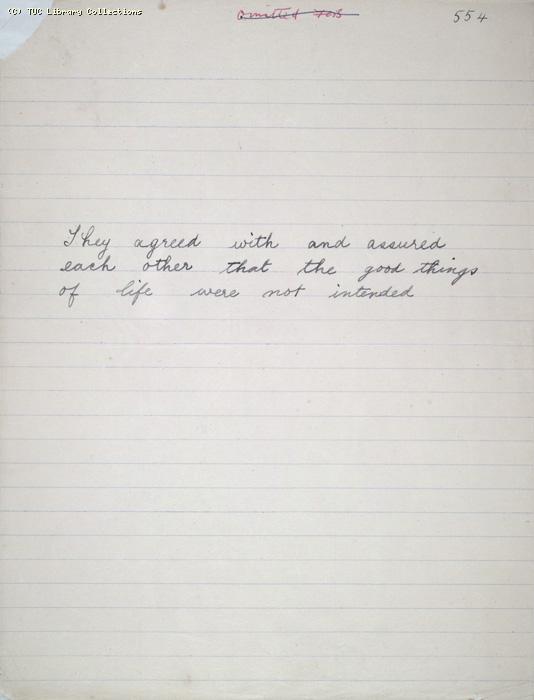 (C) TUC Library Collections
omitted FoB
554
They agreed with and assured
each other that the good things
of life were not intended